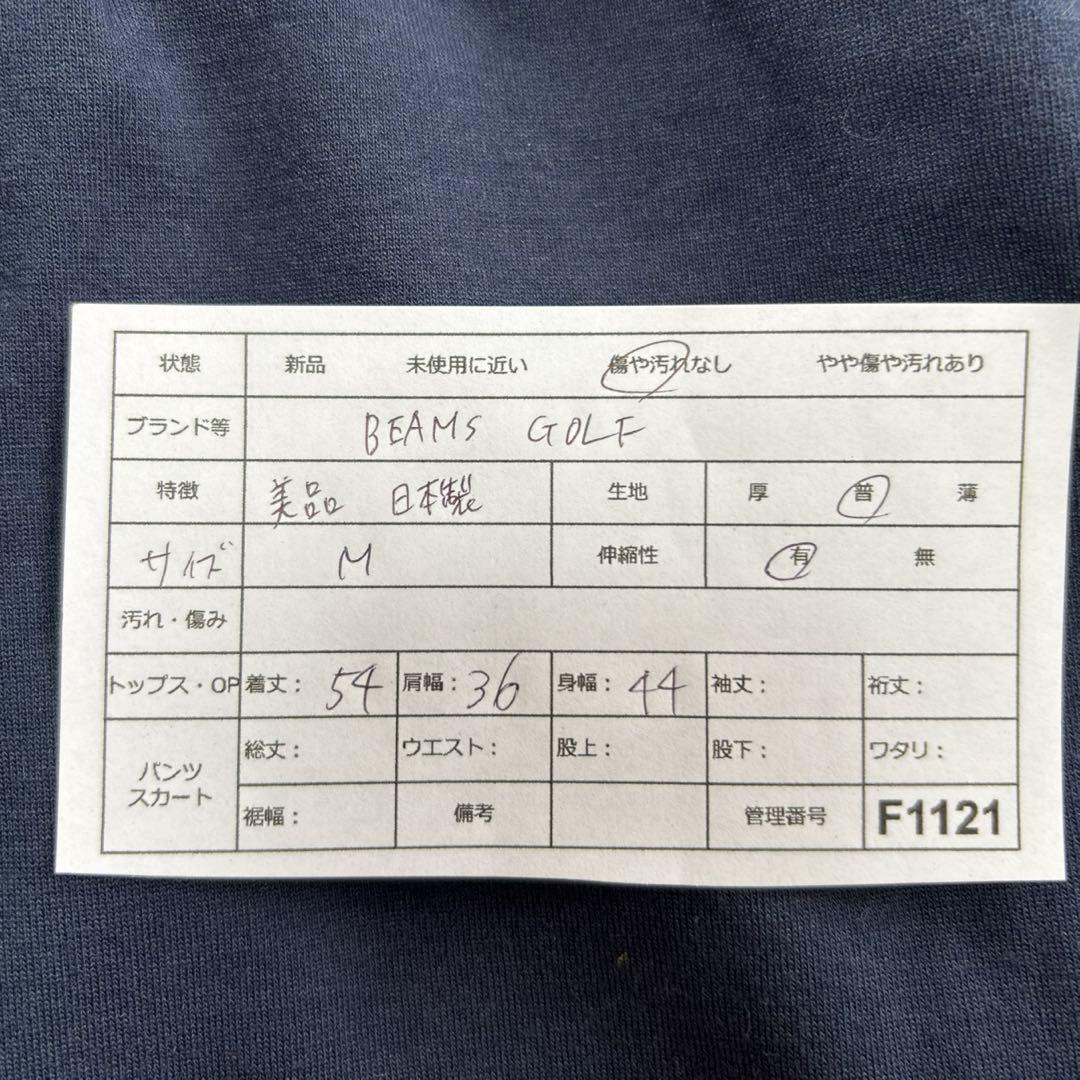 状態 新品 未使用に近い 傷や汚れなし やや傷や汚れあり
ブランド等 BEAMS GOLF
特徴 美品 日本製 生地 厚 普 薄
サイズ M 伸縮性 有 無
汚れ・傷み
トップス・OP 着丈： 54 肩幅： 36 身幅： 44 袖丈： 裄丈：
パンツ
スカート
総丈： ウエスト： 股上： 股下： ワタリ：
裾幅： 備考 管理番号 F1121